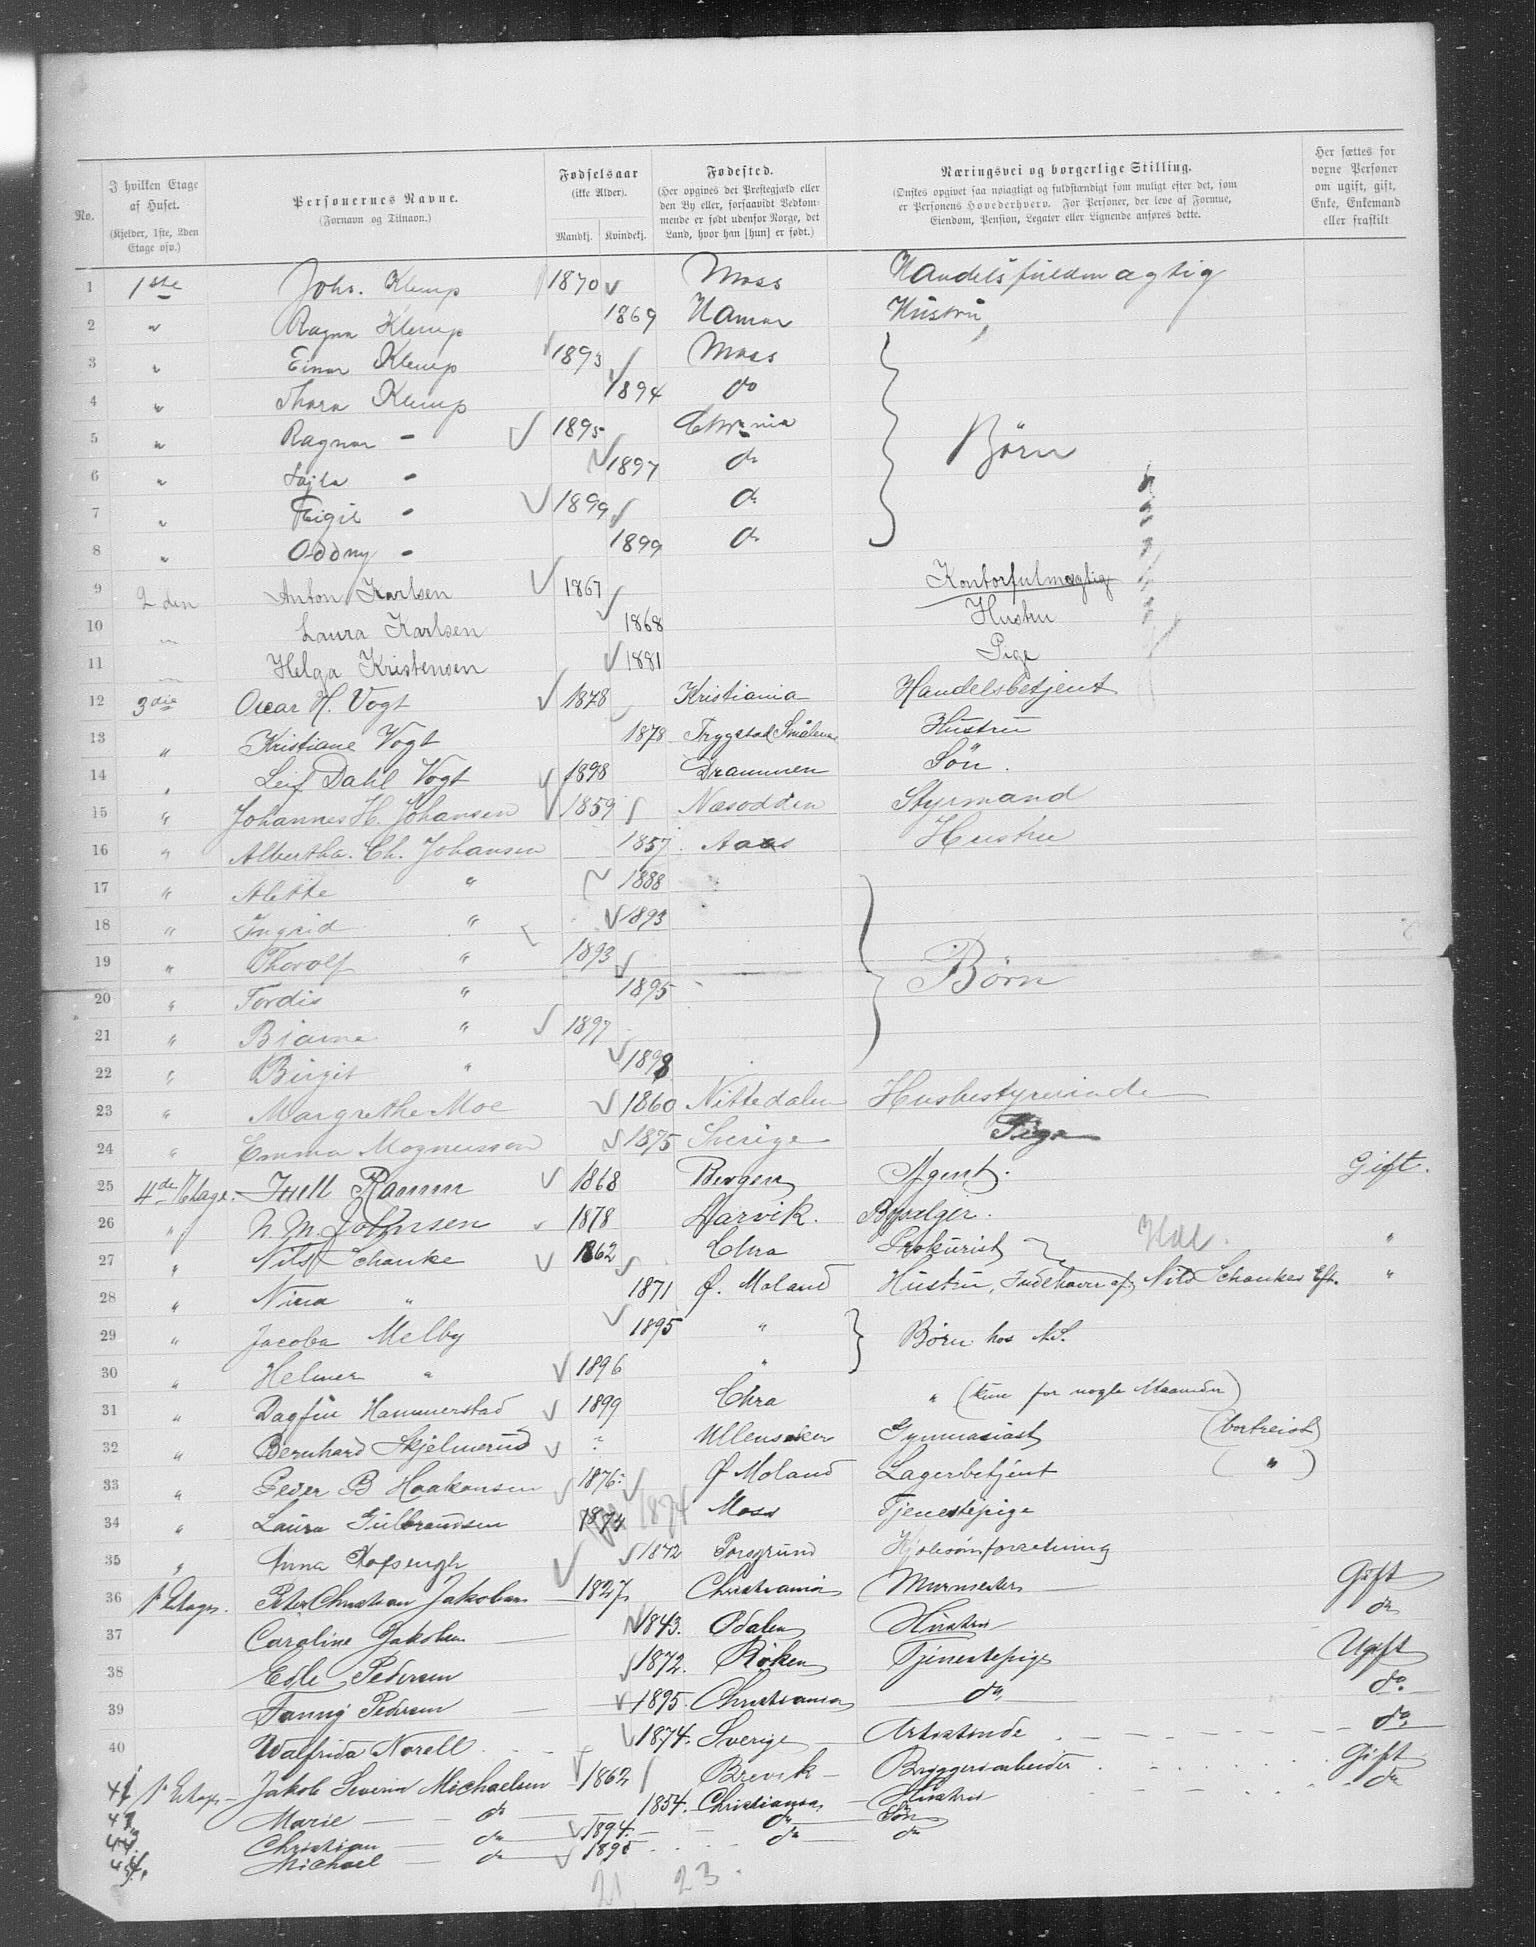 No. | I hvilken Etage af Huset. (Kjelder, 1ste, 2den Etage osv.) | Personernes Navne. (Fornavn og Tilnavn.) | Fødselsaar (ikke Alder). Mandkj. Kvindekj. | Fødested. (Her opgives det Prestegjæld eller den By eller, forsaavidt Vedkommende er født udenfor Norge, det Land, hvor han [hun] er født.) | Næringsvei og borgerlige Stilling. (Ønskes opgivet saa nøiagtigt og fuldstændigt som muligt efter det, som er Personens Hovederhverv. For Personer, der leve af Formue, Eiendom, Pension, Legater eller Lignende anføres dette. | Her sættes for voxne Personer om ugift, gift, Enke, Enkemand eller fraskilt
1 1ste Johs. Klemp 1870 Moss Handelsfuldmægtig
2 " Ragna Klemp 1869 Hamar Hustru
3 " Einar Klemp 1893 Moss
4 " Thora Klemp 1894 do
5 " Ragnar - 1895 Chrania Børn
6 " Lajla - 1897 do
7 " Eigil - 1899 do
8 " Oddny - 1899 do
9 2den Anton Karlsen 1867 Kontorfulmægtig
10 " Laura Karlsen 1868 Hustru
11 " Helga Kristensen 1881 Pige
12 3die Oscar H. Vogt 1878 Kristiania Handelsbetjent
13 " Kristiane Vogt 1878 Trygstad Smålene Hustru
14 " Leif Dahl Vogt 1898 Drammen Sön.
15 " Johannes H. Johansen 1859 Næsodden Styrmand
16 " Albertha. Ch. Johansen 1857 Aas Hustru
17 " Alette " 1888
18 " Ingrid " 1893
19 " Thorolf " 1893 Børn
20 " Tordis " 1895
21 " Bjarne " 1897
22 " Birgit " 1898
23 " Margrethe Moe 1860 Nittedalen Husbestyrerinde
24 " Emma Magnusson 1875 Sverige Pige
25 4de Etage. Juell Ramm 1868 Bergen Agent. Gift.
26 " N. M. Johnsen 1878 Larvik. Bysælger.
27 " Nils Schanke 1862 Chra Prokurist "
28 " Nina " 1871 Ø. Moland Hustru, Indehaver af Nils Schankes Eft. "
29 " Jacoba Melby 1895 " Børn hos N.S.
30 " Helmer " 1896 "
31 " Dagfin Hammerstad 1899 Chra " (kun for nogle Maaneder)
32 " Bernhard Skjelnerud ? Ullensaker Gymnasiast (bortreist)
33 " Peder B Haakonsen 1876 Ø Moland Lagerbetjent ( " )
34 " Laura Gulbrandsen 1874 1874 Moss Tjenestepige
35 " Anna 1872 Porsgrund
36 1 Etage. Peter Christian Jakobsen 1827 Christiania Murmester Gift
37 Caroline Jakobsen 1843. Odalen Hustru do
38 Edle Pedersen 1872. Röken Tjenestepige Ugift
39 Fanny Pedersen 1895. Christiania do do.
40 Walfrida Norell 1874. Sverige Artistinde do.
41 1 Etage Jakob Severin Michaelsen 1862 Brevik Bryggeriarbeider Gift
Marie do 1854. Christiania Hustru do
Christian do 1894. do Sön
Michael do 1895 do do
21 23.